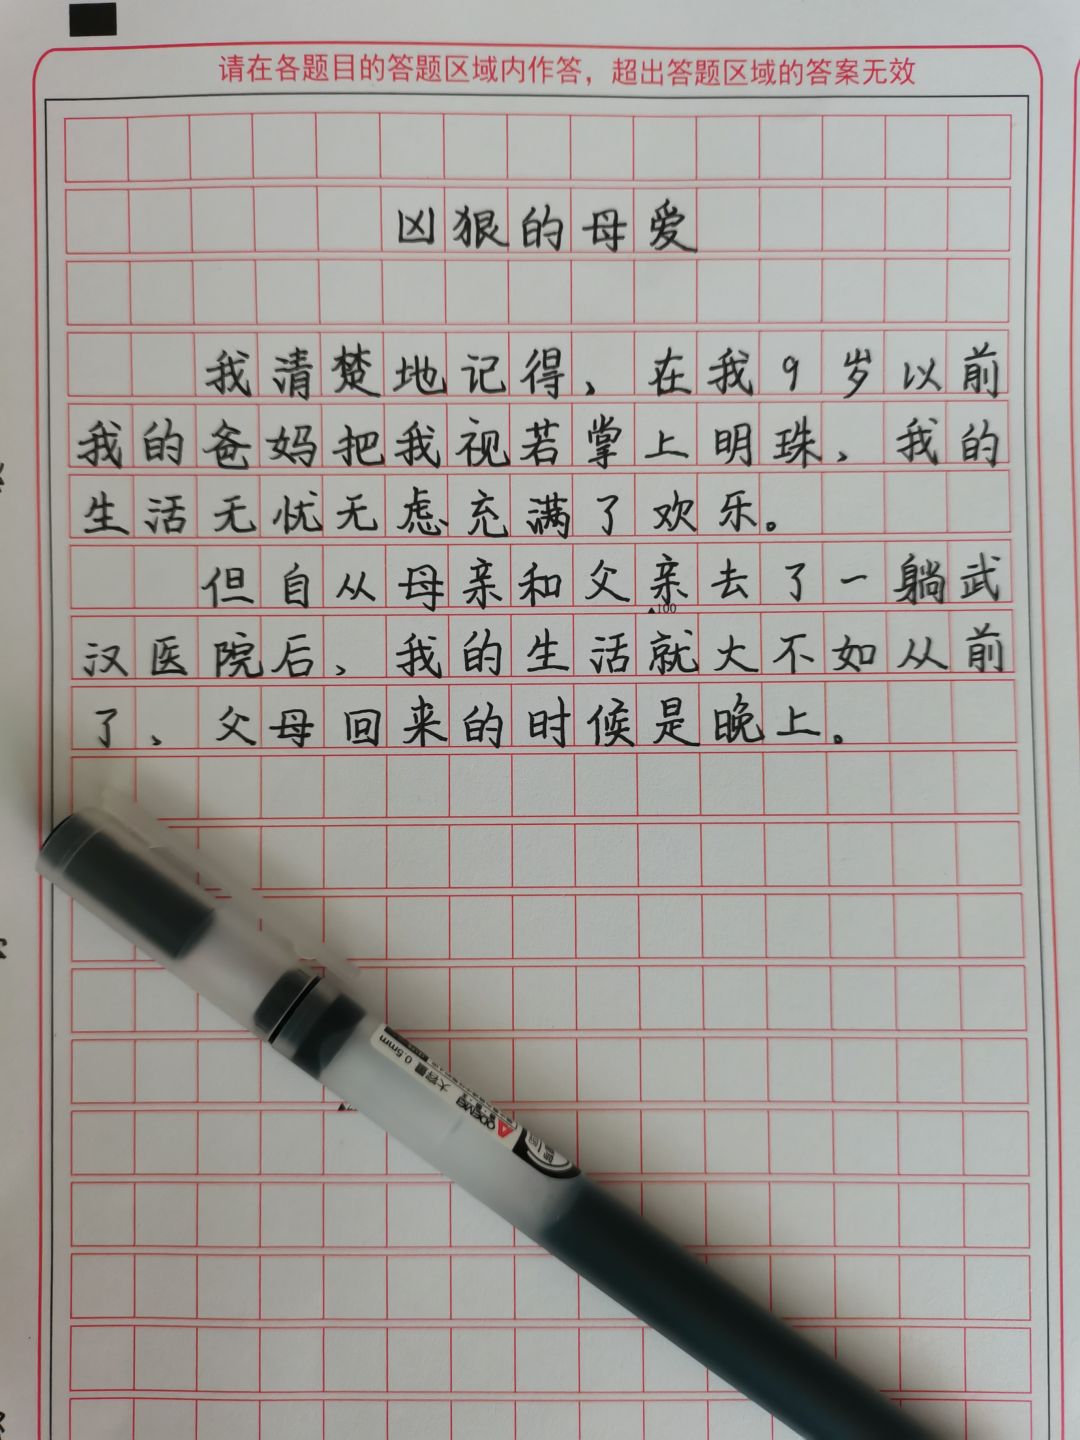 请在各题目的答题区域内作答，超出答题区域的答案无效
凶狠的母爱
我清楚地记得，在我9岁以前
我的爸妈把我视若掌上明珠，我的
生活无忧无虑充满了欢乐。
但自从母亲和父亲去了一躺武
▲100
汉医院后，我的生活就大不如从前
了、父母回来的时候是晚上。
大容量 0.5mm